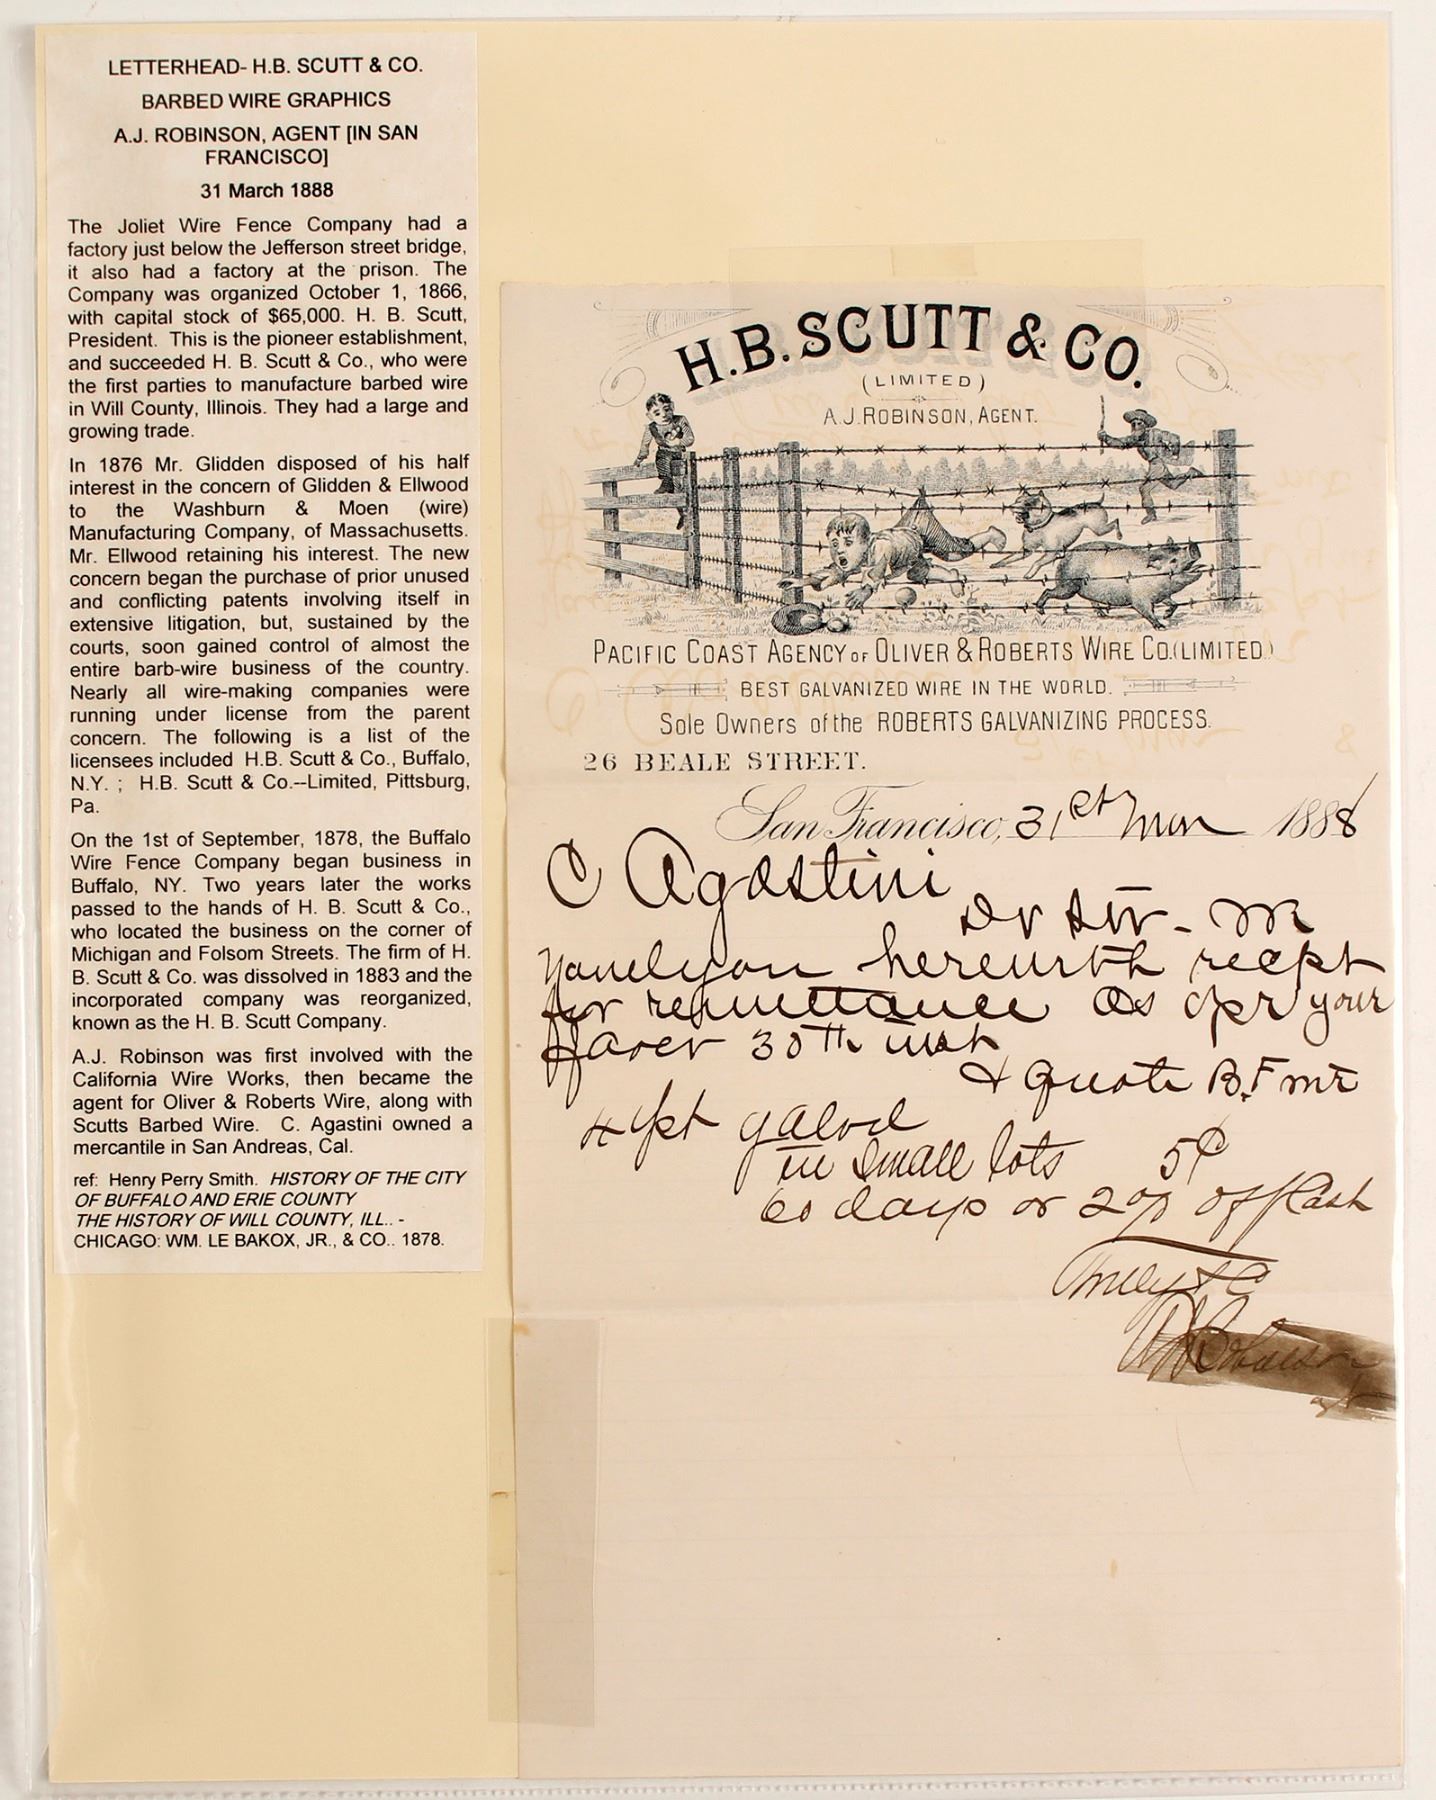 LETTERHEAD- H.B. SCUTT & CO.
BARBED WIRE GRAPHICS
A.J. ROBINSON, AGENT [IN SAN
FRANCISCO]
31 March 1888
The Joliet Wire Fence Company had a
factory just below the Jefferson street bridge,
it also had a factory at the prison. The
Company was organized October 1, 1866,
with capital stock of $65,000. H. B. Scutt,
President. This is the pioneer establishment,
and succeeded H. B. Scutt & Co., who were
the first parties to manufacture barbed wire
in Will County, Illinois. They had a large and
growing trade.
In 1876 Mr. Glidden disposed of his half
interest in the concern of Glidden & Ellwood
to the Washburn & Moen (wire)
Manufacturing Company, of Massachusetts.
Mr. Ellwood retaining his interest. The new
concern began the purchase of prior unused
and conflicting patents involving itself in
extensive litigation, but, sustained by the
courts, soon gained control of almost the
entire barb-wire business of the country.
Nearly all wire-making companies were
running under license from the parent
concern. The following is a list of the
licensees included H.B. Scutt & Co., Buffalo,
N.Y. ; H.B. Scutt & Co.--Limited, Pittsburg,
Pa.
On the 1st of September, 1878, the Buffalo
Wire Fence Company began business in
Buffalo, NY. Two years later the works
passed to the hands of H. B. Scutt & Co.,
who located the business on the corner of
Michigan and Folsom Streets. The firm of H.
B. Scutt & Co. was dissolved in 1883 and the
incorporated company was reorganized,
known as the H. B. Scutt Company.
A.J. Robinson was first involved with the
California Wire Works, then became the
agent for Oliver & Roberts Wire, along with
Scutts Barbed Wire. C. Agastini owned a
mercantile in San Andreas, Cal.
ref: Henry Perry Smith. HISTORY OF THE CITY
OF BUFFALO AND ERIE COUNTY
THE HISTORY OF WILL COUNTY, ILL.. -
CHICAGO: WM. LE BAKOX, JR., & CO.. 1878.
H.B. SCUTT & CO.
(LIMITED)
A.J. ROBINSON, AGENT.
PACIFIC COAST AGENCY OF OLIVER & ROBERTS WIRE CO.(LIMITED.)
BEST GALVANIZED WIRE IN THE WORLD.
Sole Owners of the ROBERTS GALVANIZING PROCESS.
26 BEALE STREET.
San Francisco, 31st Mar 1888
C Agastini
Dr Sir -
herewith recept
for remittance as per your
faver 30th inst
& quote B.F
4 pt galvd
in small lots 5¢
60 days or 2 op off Cash
Truly
Robinson